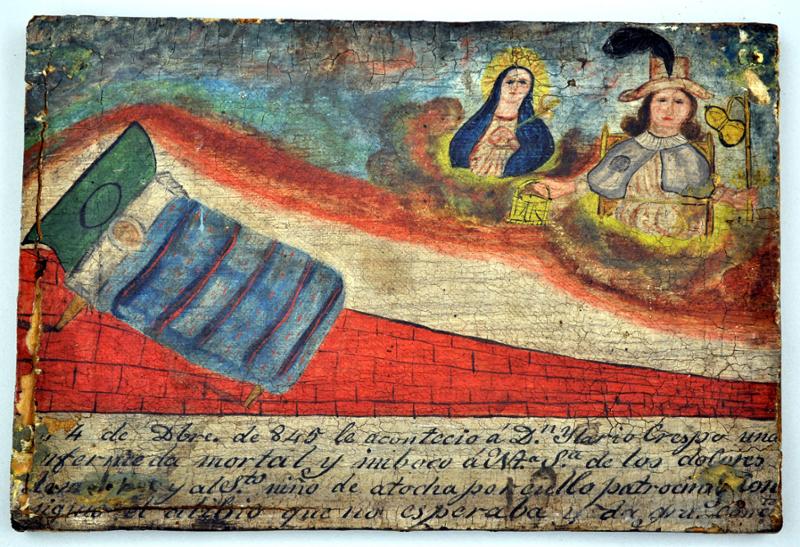 4 de Dbre. de 845 le acontecio á D.n Ylario Crespo una
nfermeda mortal y imboco á M.a S.a de los dolores
y al S.to niño de atocha por cullo patrocinio con
siguio el alibio que no esperaba y da gra.